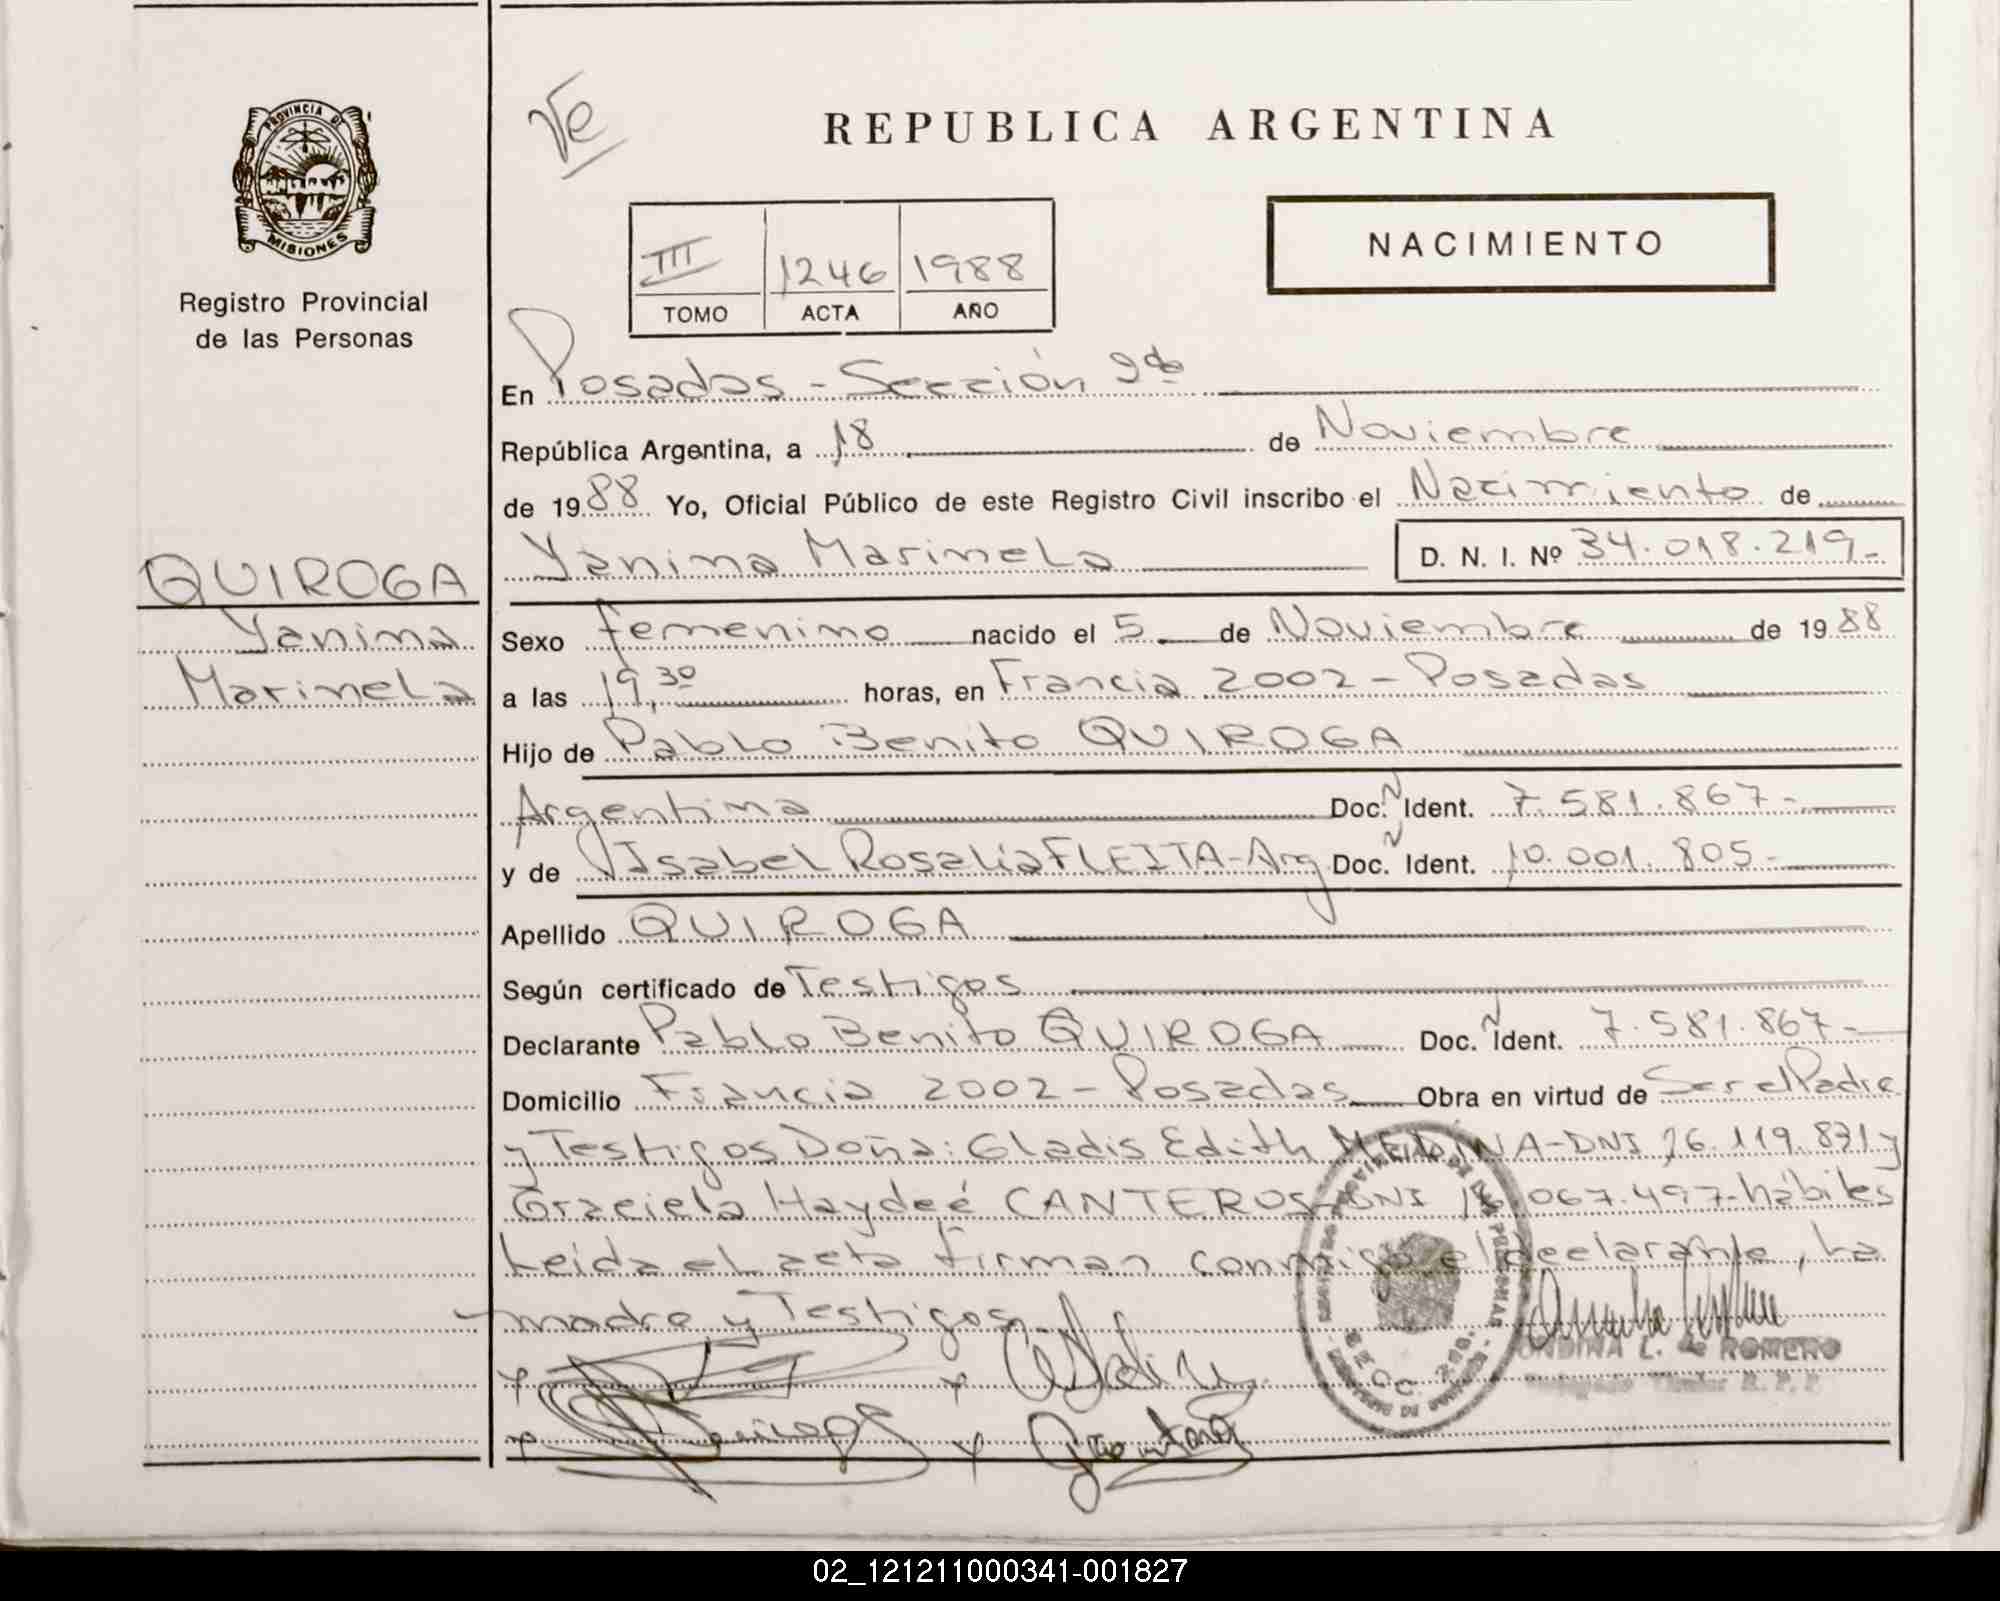 Ve
REPUBLICA ARGENTINA
PROVINCIA DE
MISIONES
Registro Provincial
de las Personas
III 1246 1988
TOMO ACTA AÑO
NACIMIENTO
En Posadas - Sección 2da
República Argentina, a 18 de Noviembre
de 1988 Yo, Oficial Público de este Registro Civil inscribo el Nacimiento de
Yanina Marinela D. N. I. Nº 34.018.219-
QUIROGA
Yanina
Marinela
Sexo femenino nacido el 5 de Noviembre de 1988
a las 19,30 horas, en Francia 2002 - Posadas
Hijo de Pablo Benito QUIROGA
Argentina Doc. Ident. 7.581.867-
y de Isabel Rosalia FLEITA-Arg Doc. Ident. 10.001.805-
Apellido QUIROGA
Según certificado de Testigos
Declarante Pablo Benito QUIROGA Doc. Ident. 7.581.867-
Domicilio Francia 2002 - Posadas Obra en virtud de Ser el Padre
y Testigos Doña: Gladis Edith MEDINA-DNI 26.119.871 y
Graciela Haydeé CANTEROS DNI 067.497-hábiles
Leida el acta firman conmigo el declarante, la
madre y Testigos.
ONDINA L. de ROMERO
Titular R. P. P.
02_121211000341-001827